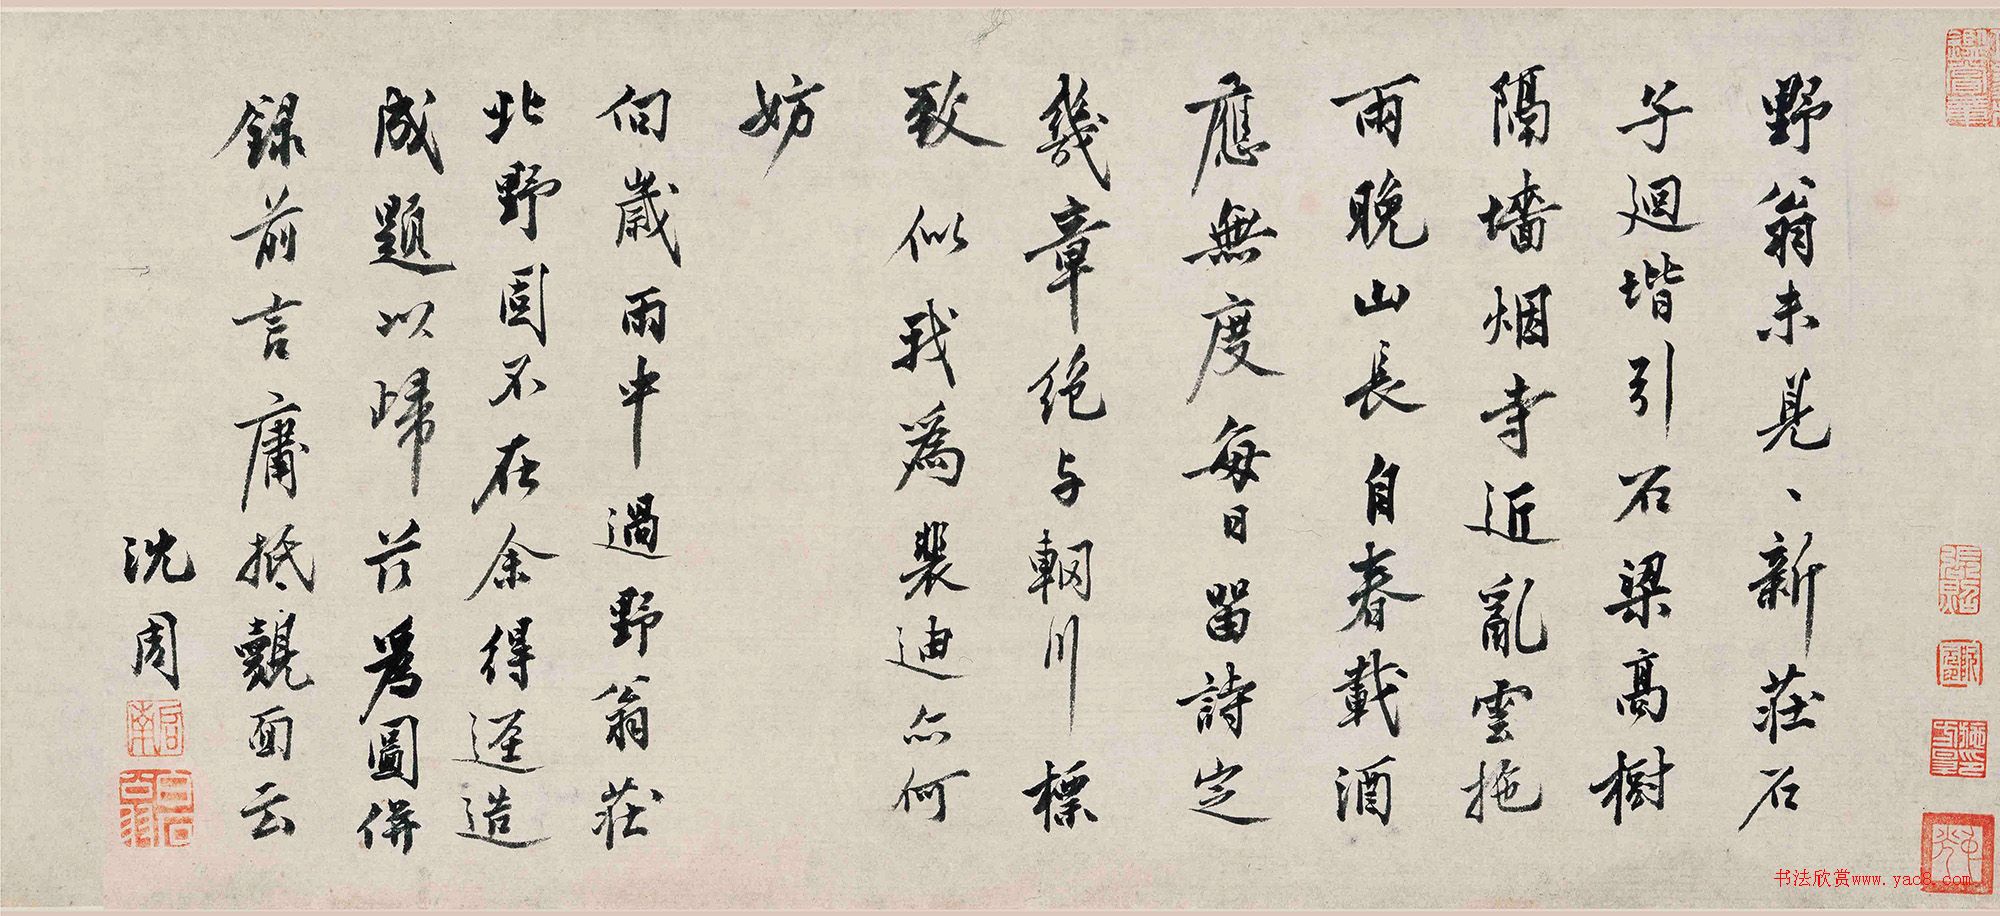 野翁未見、新莊石
子迴堦引石梁高樹
隔墻烟寺近亂雲拖
雨晚山長自春載酒
應無度每日留詩定
幾章絕与輞川標
致似我為裴迪亦何
妨
向歲雨中過野翁莊
此野固不在余得逕造
成題以歸茲為圖併
錄前言庸抵覿面云
沈周
啟南
白石翁
书法欣赏www.yac8.com